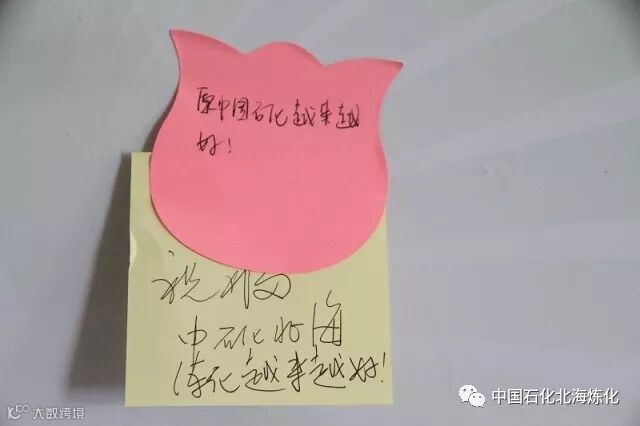 原中国石化越来越
好！
祝福
中石化北海
炼化越来越好！
中国石化北海炼化
大数跨境